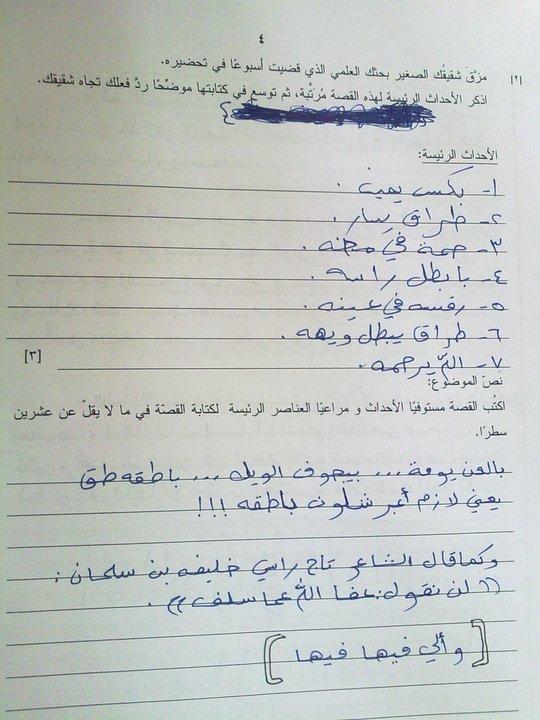 ٤
٢) مزّقَ شقيقُك الصغير بحثك العلمي الذي قضيت أسبوعًا في تحضيره.
اذكر الأحداث الرئيسة لهذه القصة مُرَتَّبة، ثم توسع في كتابتها موضّحًا ردَّ فعلك تجاه شقيقك.
الأحداث الرئيسة:
١- بكس يمين.
٢- طراق يسار.
٣- جمة في مخنه.
٤- بابطل راسه.
٥- رفسه في عينه.
٦- طراق يبطل ويهه.
٧- الله يرحمه.
[٣]
نصّ الموضوع:
اكتُب القصة مستوفيًا الأحداث و مراعيًا العناصر الرئيسة لكتابة القصّة في ما لا يقلّ عن عشرين
سطرًا.
بالعن يومه... بيجوف الويل... باطقه طق
يعني لازم أعبر شلون باطقه!!!
وكما قال الشاعر تاج راسي خليفه بن سلمان:
(( لن نقول: عفا الله عما سلف )).
[ وألي فيها فيها ]